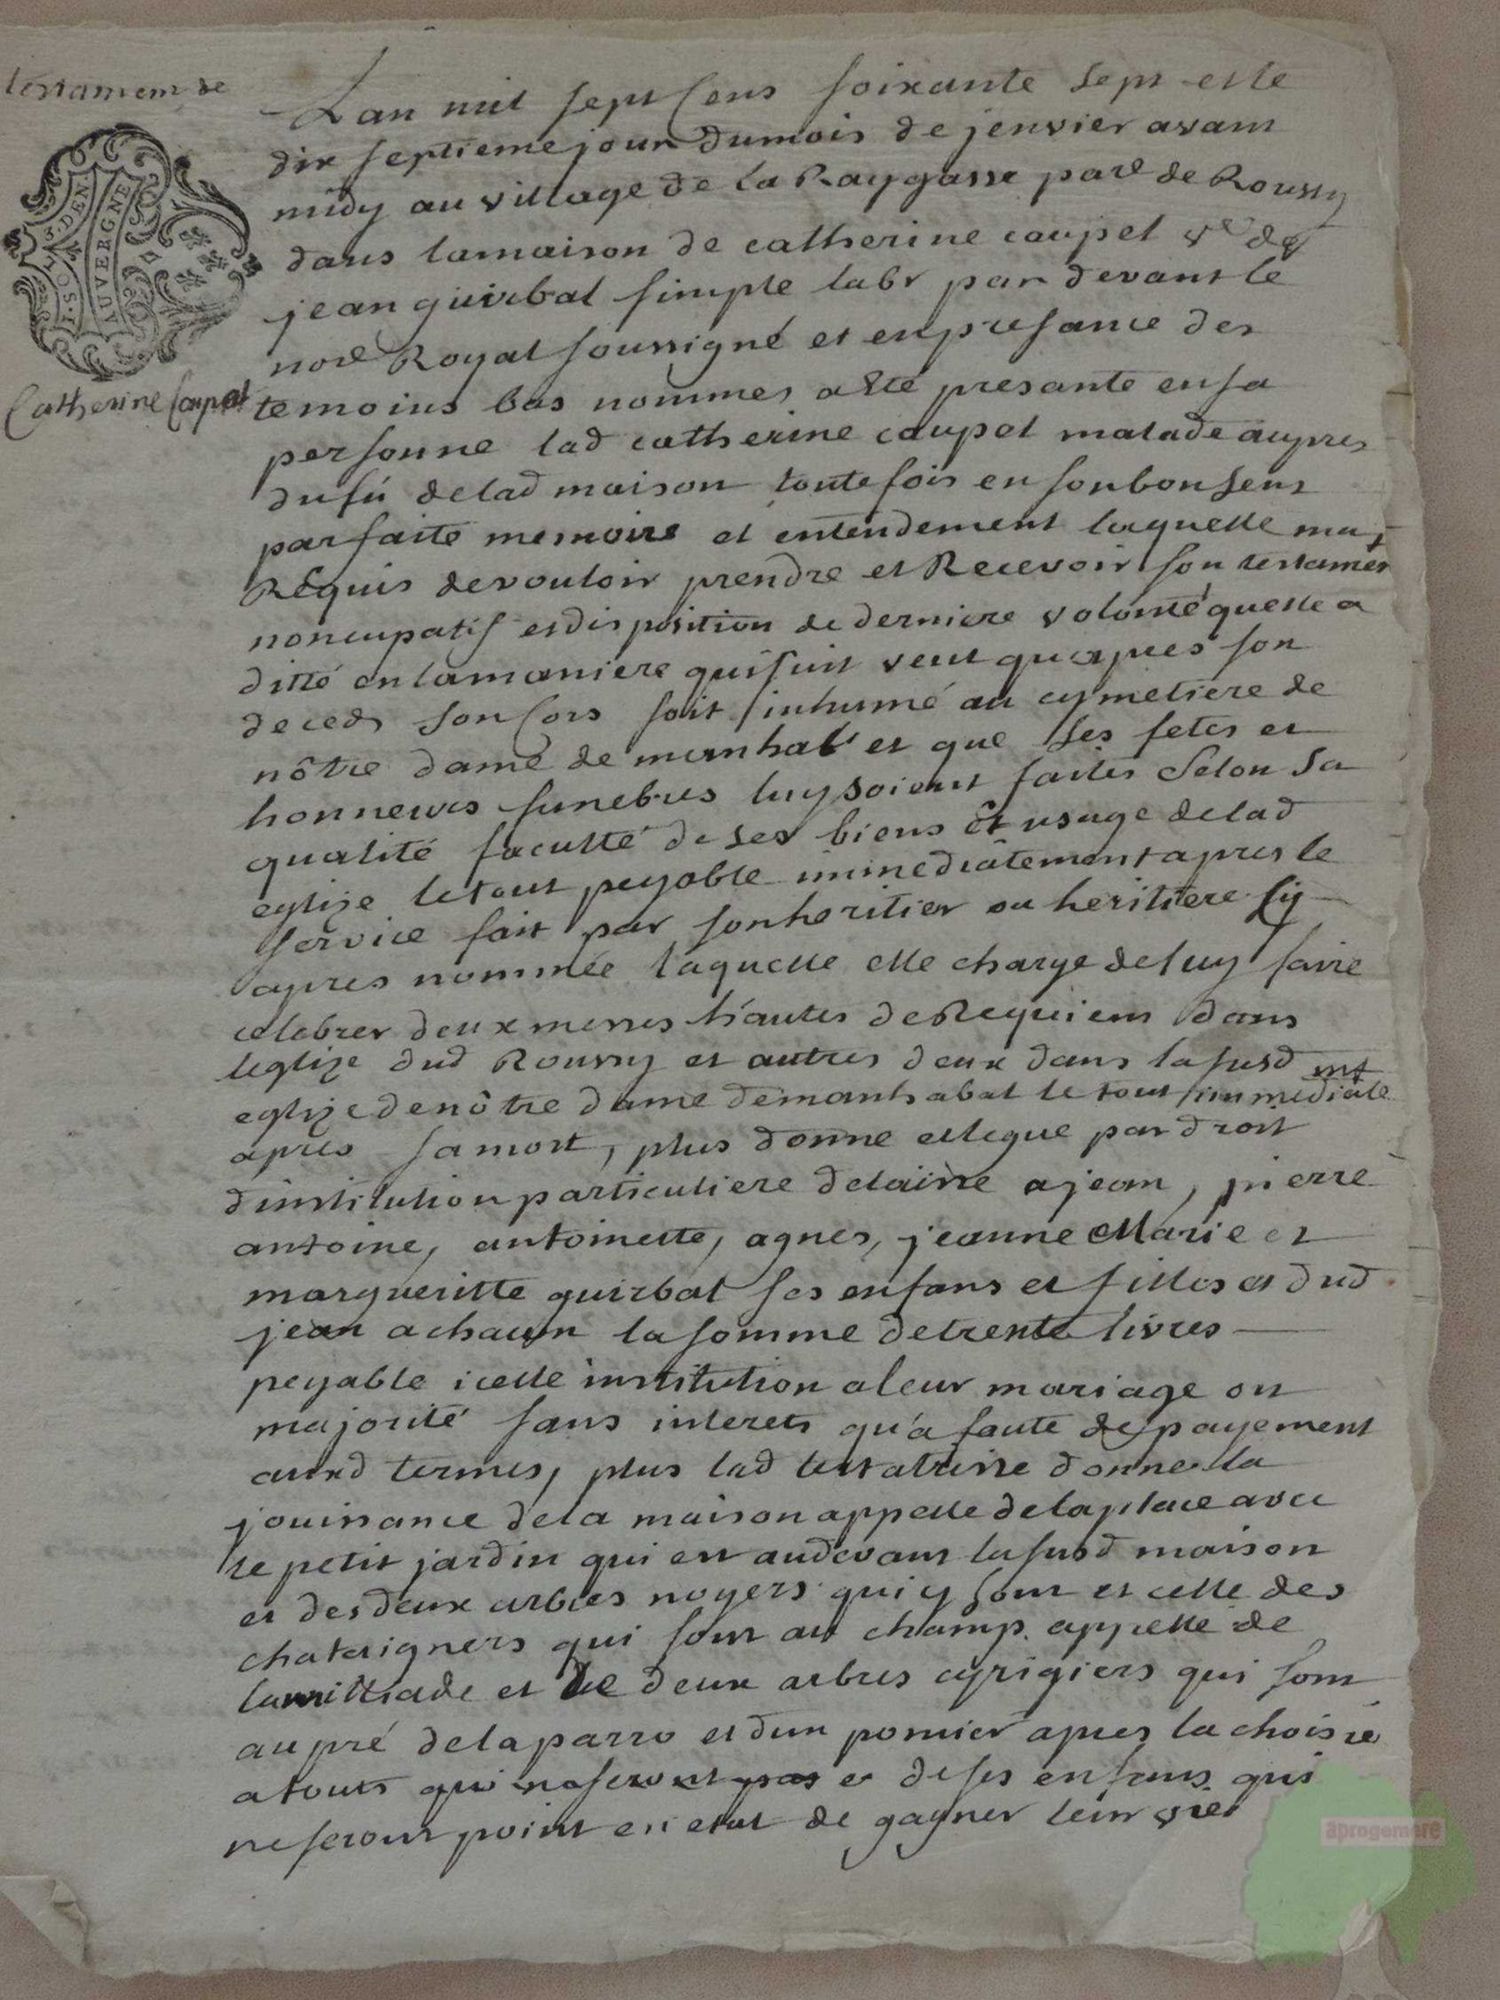 testament de
Catherine Caupet
I. SOLS. 4. DEN
AUVERGNE
Lan mil sept Cens soixante sept et le
dix septieme jour du mois de jenvier avant
midy au village de la Raygasse par.e de Roussy
dans la maison de catherine caupet v.e de
jean guirbal simple lab.r par devant le
no.re Royal soussigné et en presance des
temoins bas nommes a été presante en sa
personne lad catherine caupet malade aupres
du fú de lad maison toutefois en son bon sens
parfaite memoire et entendement laquelle ma
Requis de vouloir prendre et Recevoir son testament
noncupatif et disposition de derniere volonté quelle a
ditté en la maniere qui suit veut quapres son
deceds son Cors soit inhumé au cymetiere de
nôtre dame de manhal et que ses fetes et
honneurs funebres luy soient faites Selon sa
qualité faculté de ses biens et usage de lad
eglize le tout peyable immediâtement apres le
service fait par son heritier ou heritiere Cy
apres nommée laquelle elle charge de luy faire
celebrer deux messes hautes de Requiem dans
leglize dud Roussy et autres deux dans la susd
eglize de nôtre dame de manhabal le tout immediate mt
apres sa mort, plus donne et legue par droit
dinstitution particuliere delaisse a jean, pierre
antoine, antoinette, agnes, jeanne Marie et
margueritte guirbal ses enfans et filles et dud
jean a chacun la somme de trente livres
peyable icelle institution a leur mariage ou
majorité sans interets qu'a faute de payement
auxd termes, plus lad testatrisse donne la
jouissance de la maison appelle de la place avec
le petit jardin qui est au devant la susd maison
et des deux arbres noyers qui y sont et celle des
chataigners qui sont au champ appelle de
la milliade et de deux arbres cyrigiers qui sont
au pré de la parro et dun pomier apres la choisie
a touts qui ne seront pas et de ses enfans qui
ne seront point en etat de gagner leur vie
aprogemere